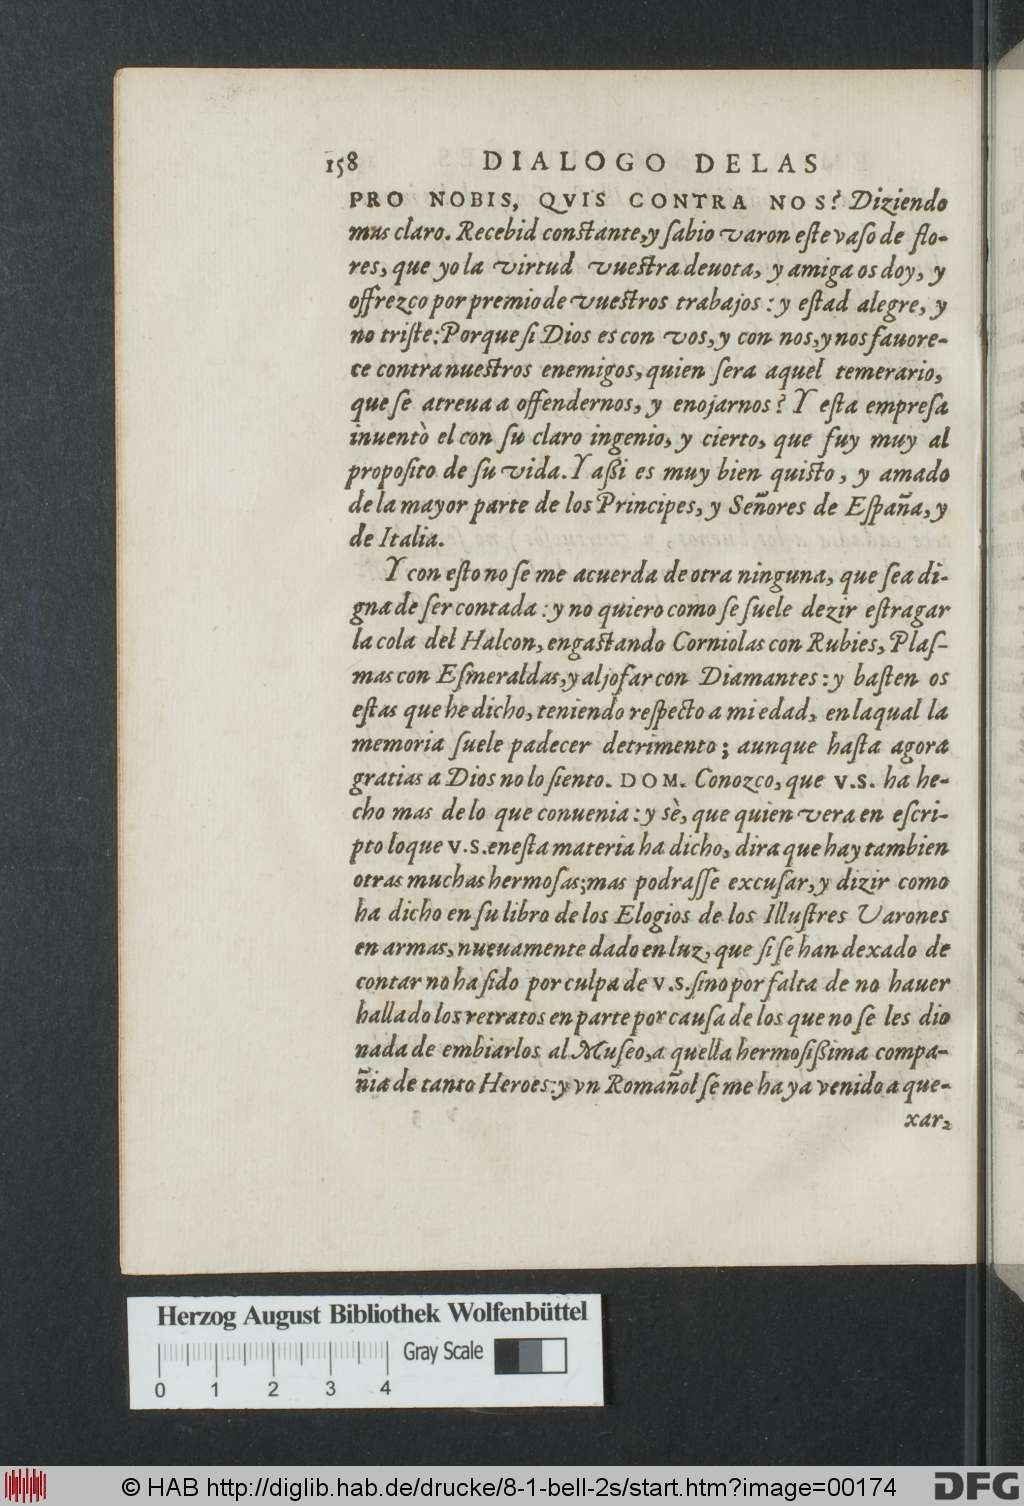 158 DIALOGO DELAS
PRO NOBIS, QVIS CONTRA NOS? Diziendo
mus claro. Recebid constante, y sabio varon este vaso de flo-
res, que yo la virtud vuestra deuota, y amiga os doy, y
offrezco por premio de vuestros trabajos: y estad alegre, y
no triste: Porque si Dios es con vos, y con nos, y nos fauore-
ce contra nuestros enemigos, quien sera aquel temerario,
que se atreua a offendernos, y enojarnos? Y esta empresa
inuentò el con su claro ingenio, y cierto, que fuy muy al
proposito de su vida. Y aßi es muy bien quisto, y amado
de la mayor parte de los Principes, y Señores de España, y
de Italia.
Y con esto no se me acuerda de otra ninguna, que sea di-
gna de ser contada: y no quiero como se suele dezir estragar
la cola del Halcon, engastando Corniolas con Rubies, Plas-
mas con Esmeraldas, y aljofar con Diamantes: y basten os
estas que he dicho, teniendo respecto a mi edad, en laqual la
memoria suele padecer detrimento; aunque hasta agora
gratias a Dios no lo siento. DOM. Conozco, que V.S. ha he-
cho mas de lo que conuenia: y sè, que quien vera en escri-
pto loque V.S. enesta materia ha dicho, dira que hay tambien
otras muchas hermosas; mas podrasse excusar, y dizir como
ha dicho en su libro de los Elogios de los Illustres Varones
en armas, nueuamente dado en luz, que si se han dexado de
contar no ha sido por culpa de V.S. sino por falta de no hauer
hallado los retratos en parte por causa de los que no se les dio
nada de embiarlos al Museo, a quella hermosißima compa-
ñia de tanto Heroes: y vn Romañol se me ha ya venido a que-
xar,
Herzog August Bibliothek Wolfenbüttel
Gray Scale
0 1 2 3 4
© HAB http://diglib.hab.de/drucke/8-1-bell-2s/start.htm?image=00174
DFG